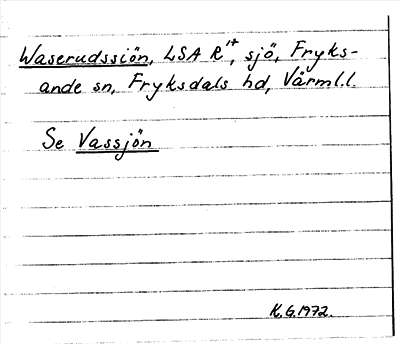 Waserudssiön, LSA R14, sjö, Fryks-
ande sn, Fryksdals hd, Värml.l.
Se Vassjön
K.G.1972.